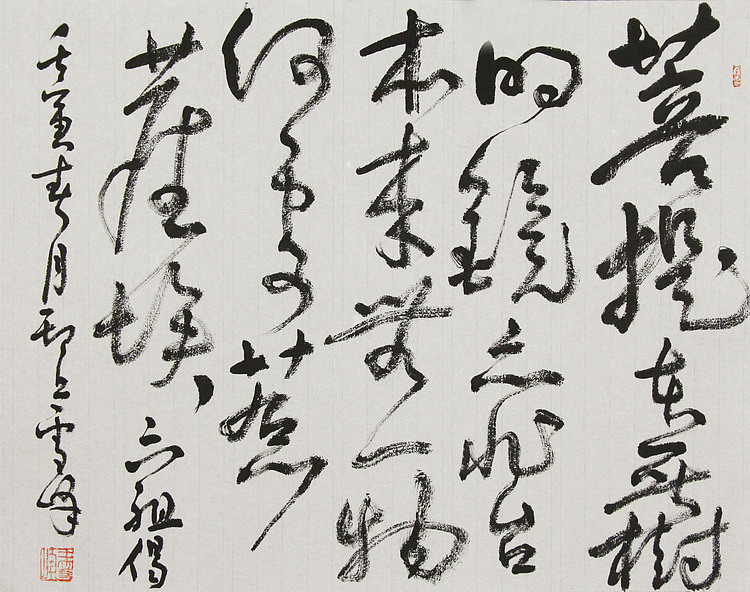 菩提本無樹
明鏡亦非台
本来無一物
何處惹
塵埃
六祖偈
壬寅春月邗上雪峰